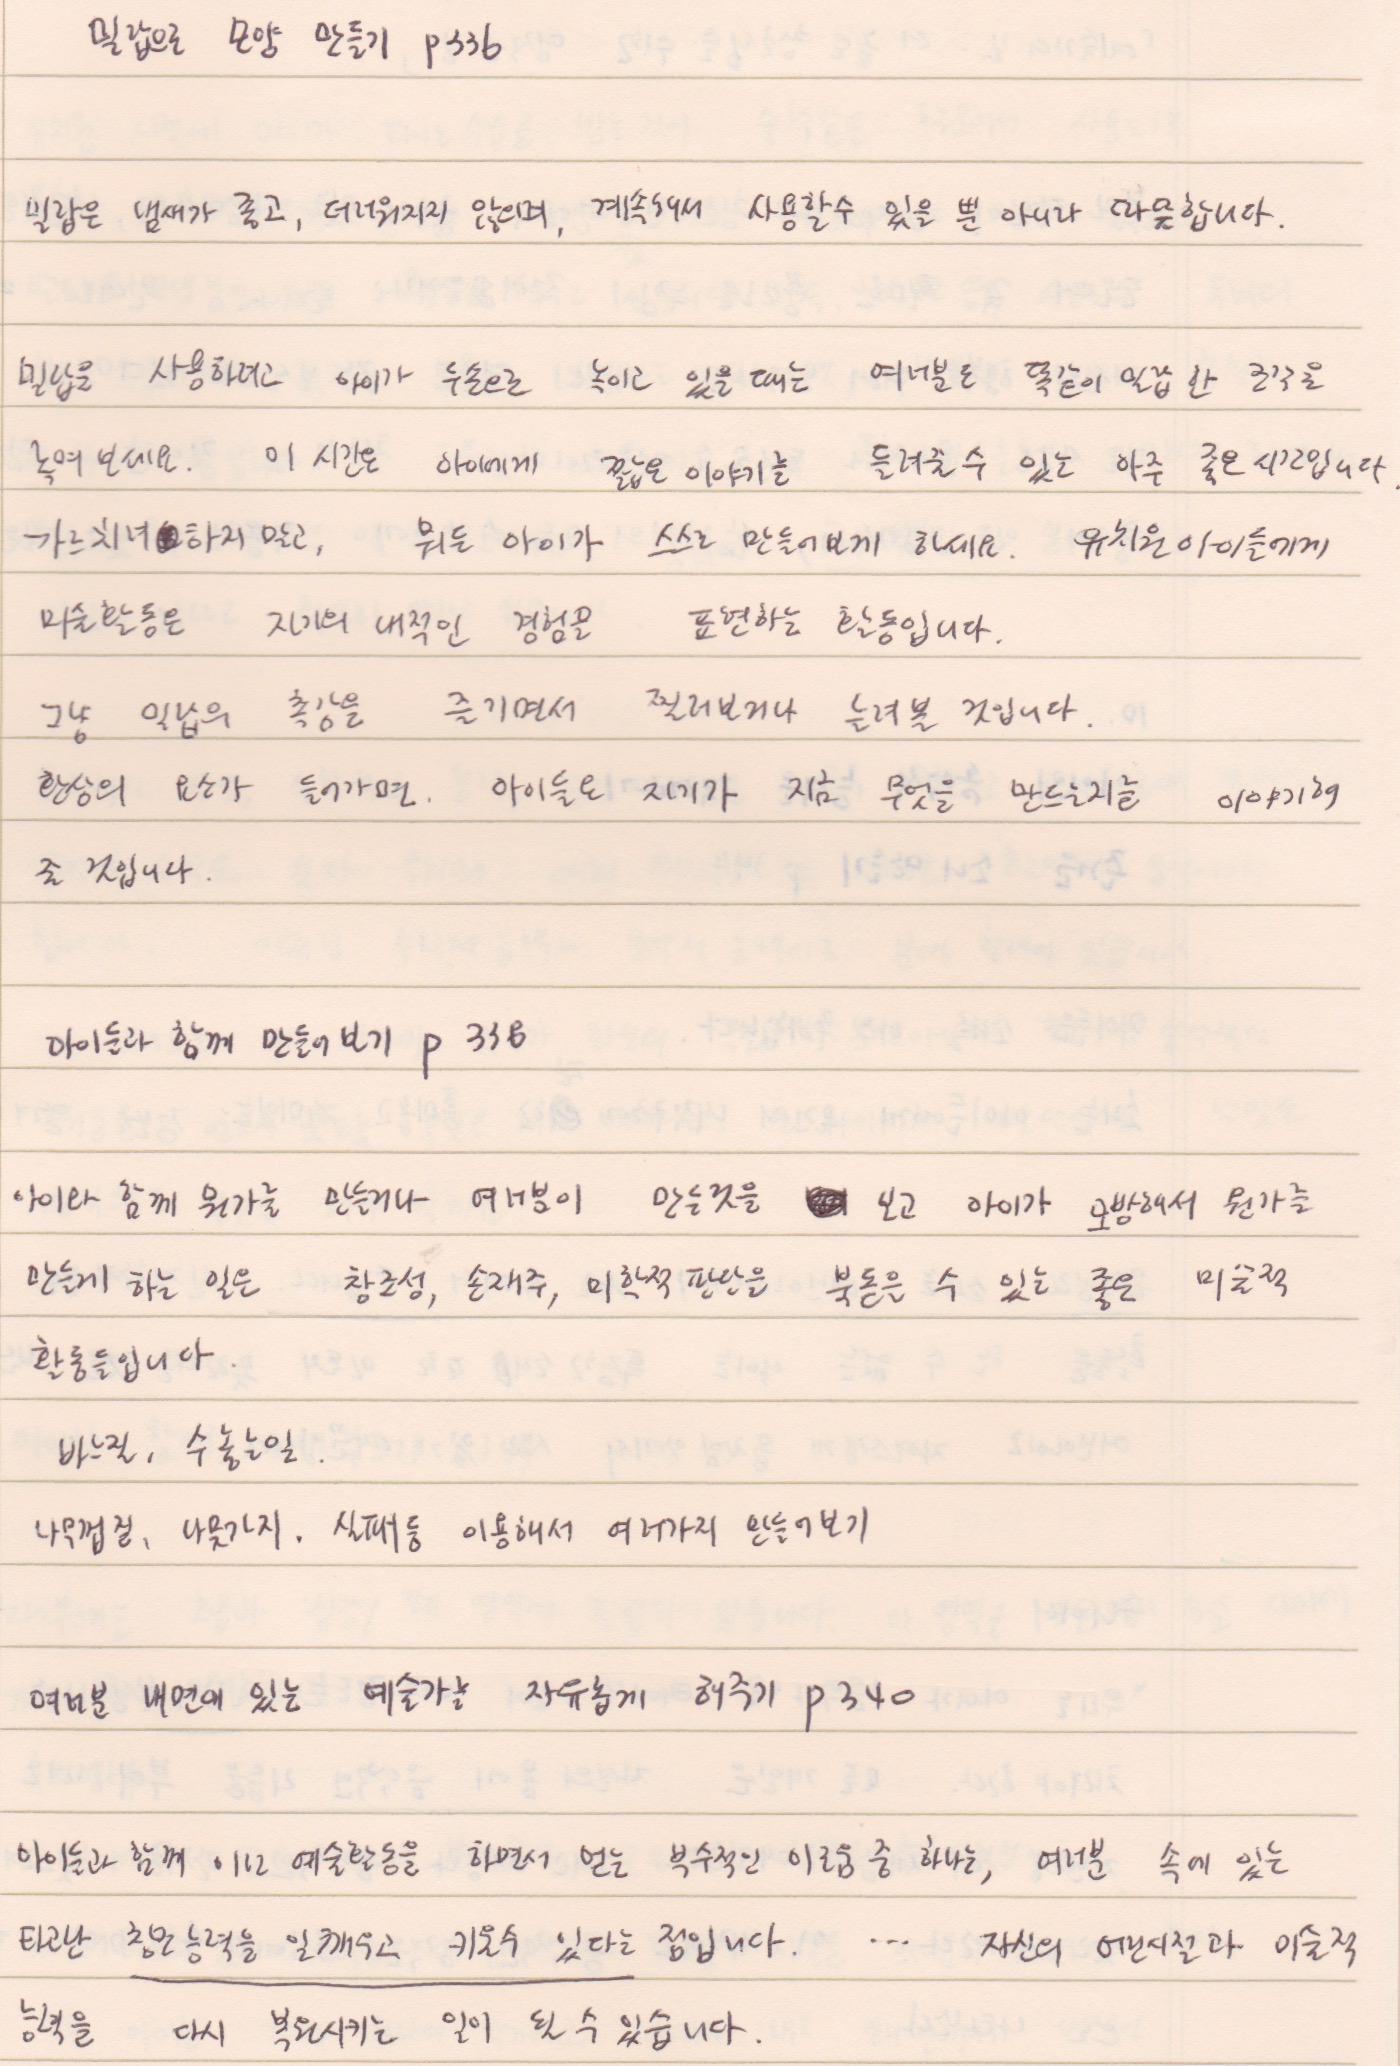 밀랍으로 모양 만들기 p336
밀랍은 냄새가 좋고, 더러워지지 않으며, 계속해서 사용할수 있을 뿐 아니라 따뜻합니다.
밀랍을 사용하려고 아이가 두손으로 녹이고 있을 때는 여러분도 똑같이 밀랍 한 조각을
녹여 보세요. 이 시간은 아이에게 짧은 이야기를 들려줄수 있는 아주 좋은 시간입니다.
가르치려 하지 말고, 뭐든 아이가 스스로 만들어보게 하세요. 유치원 아이들에게
미술활동은 자기의 내적인 경험을 표현하는 활동입니다.
그냥 밀랍의 촉감을 즐기면서 찔러보거나 눌려볼 것입니다.
환상의 요소가 들어가면. 아이들은 자기가 지금 무엇을 만드는지를 이야기해
줄 것입니다.
아이들과 함께 만들어보기 p 338
아이와 함께 뭔가를 만들거나 여러분이 만든것을 보고 아이가 모방해서 뭔가를
만들게 하는 일은 창조성, 손재주, 미학적 판단을 북돋을 수 있는 좋은 미술적
활동들입니다.
바느질, 수놓는일.
나무껍질, 나뭇가지. 실패등 이용해서 여러가지 만들어보기
여러분 내면에 있는 예술가를 자유롭게 해주기 p340
아이들과 함께 이런 예술활동을 하면서 얻는 부수적인 이로움 중 하나는, 여러분 속에 있는
타고난 창조능력을 일깨우고 키울수 있다는 점입니다. ... 자신의 어린시절과 미술적
능력을 다시 복원시키는 일이 될 수 있습니다.